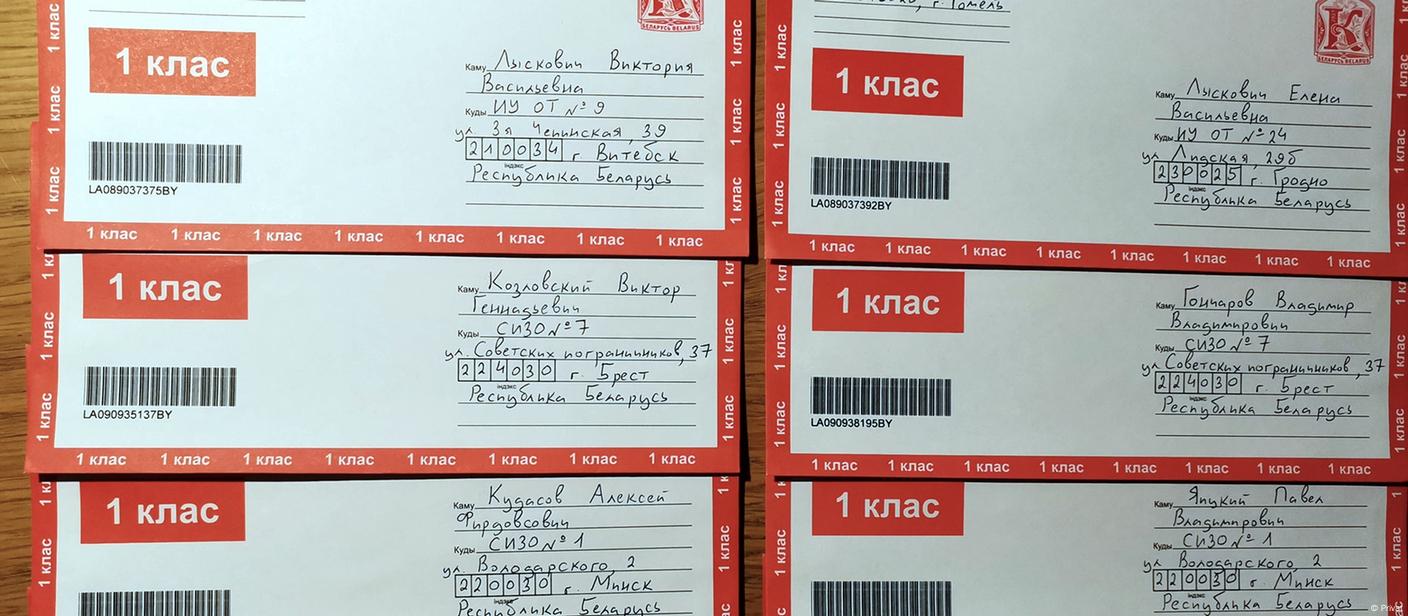 1 клас
Каму Лыскович Виктория
Васильевна
Куды ИУ ОТ № 9
ул. 3я Чепинская, 39
210034 г. Витебск
індэкс
Республика Беларусь
LA089037375BY
1 клас 1 клас 1 клас 1 клас 1 клас 1 клас 1 клас 1 клас
г. Гомель
БЕЛАРУСЬ BELARUS
1 клас
Каму Лыскович Елена
Васильевна
Куды ИУ ОТ № 24
ул. Лидская, 29б
230025 г. Гродно
індэкс
Республика Беларусь
LA089037392BY
1 клас 1 клас 1 клас 1 клас 1 клас 1 клас 1 клас 1 клас
1 клас
Каму Козловский Виктор
Геннадьевич
Куды СИЗО № 7
ул. Советских пограничников, 37
224030 г. Брест
індэкс
Республика Беларусь
LA090935137BY
1 клас 1 клас 1 клас 1 клас 1 клас 1 клас 1 клас 1 клас
1 клас
Каму Гончаров Владимир
Владимирович
Куды СИЗО № 7
ул. Советских пограничников, 37
224030 г. Брест
індэкс
Республика Беларусь
LA090938195BY
1 клас 1 клас 1 клас 1 клас 1 клас 1 клас 1 клас 1 клас
1 клас
Каму Кудасов Алексей
Фирдовсович
Куды СИЗО № 1
ул. Володарского, 2
220030 г. Минск
індэкс
Республика Беларусь
1 клас
Каму Япукий Павел
Владимирович
Куды СИЗО № 1
ул. Володарского, 2
220030 г. Минск
індэкс
Республика Беларусь